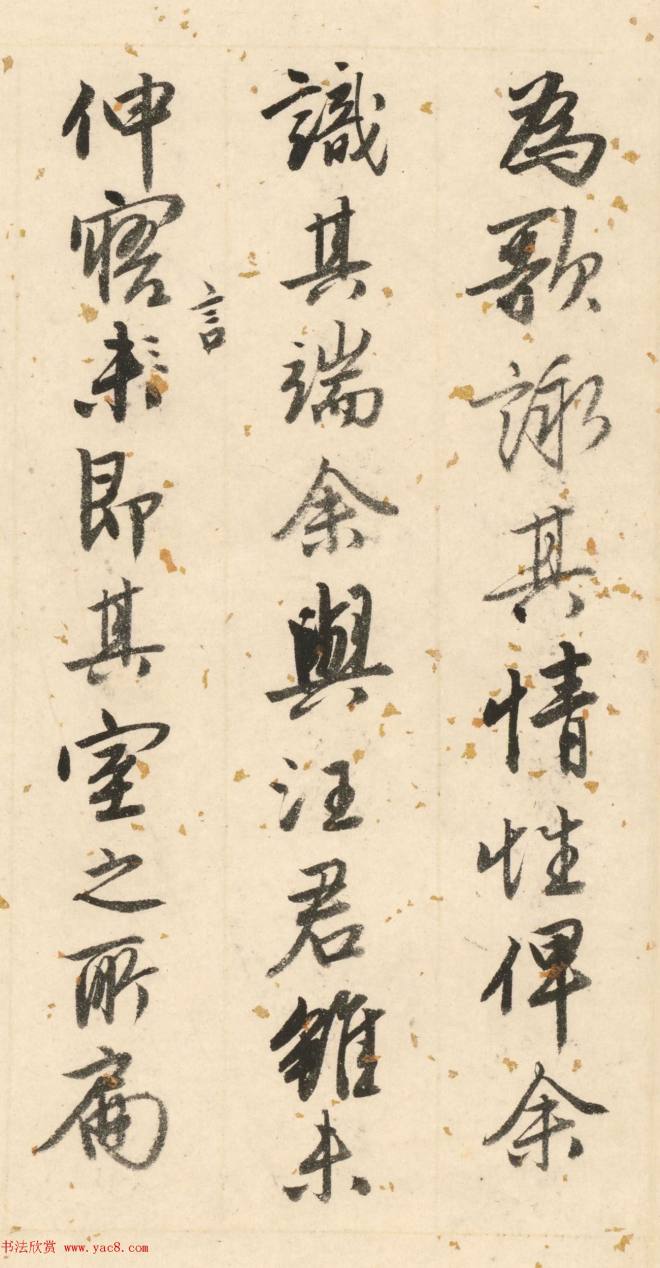 為歌詠其情性俾余
識其端余與汪君雖未
伸寤言未即其室之所扁
书法欣赏 www.yac8.com